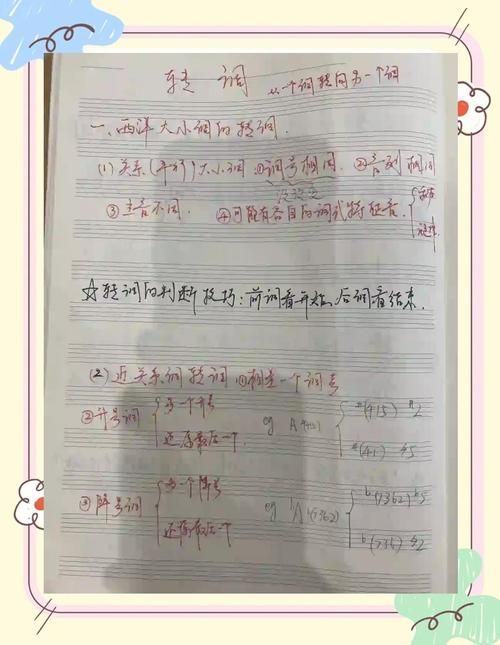 转 调 从一个调转向另一个调
一、西洋大小调的转调.
(1) 关系(平行)大小调 ①调号相同 ②音列相同
没改变
③主音不同. ④可能有各自的调式特征音.
☆转调的判断技巧: 前调看开始, 后调看结束.
(2) 近关系调转调 ①相差一个调号
②升号调 多一个升号
还原最后一个. eg A(415) #(415) #2
#(41) ♮5
③降号调 多一个降号
还原最后一个 eg ♭A(7362) ♭(7362) ♭5
♭(736) ♮2